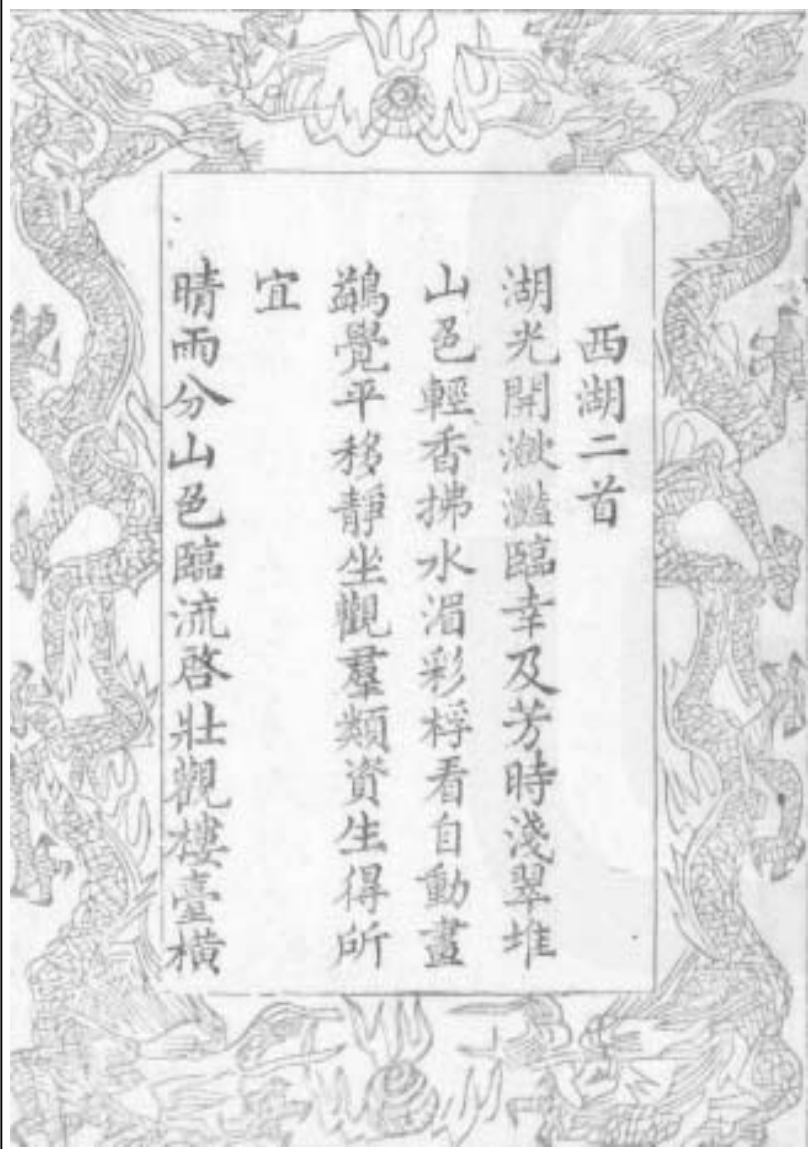 西湖二首
湖光開瀲灩臨幸及芳時淺翠堆
山色輕香拂水湄彩桴看自動畫
鷁覺平移靜坐觀羣類資生得所
宜
晴雨分山色臨流啓壯觀樓臺橫